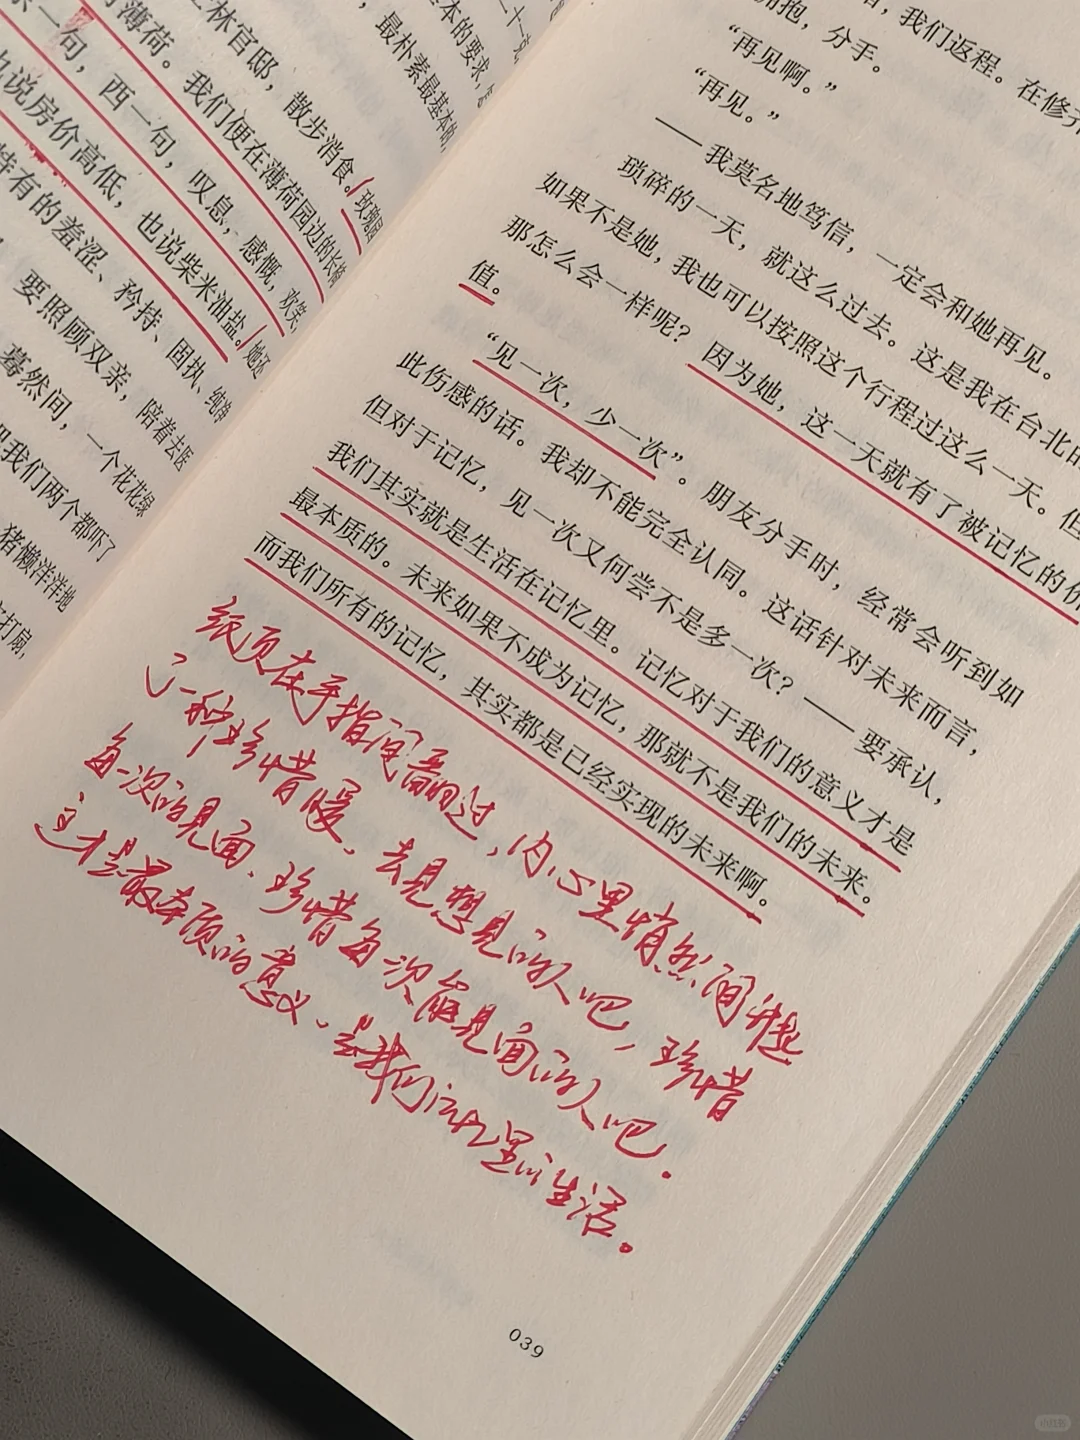 士林官邸，散步消食。（玫瑰园
薄荷。我们便在薄荷园边的长椅
一句，西一句，叹息，感慨，欢笑，
说房价高低，也说柴米油盐。她还
特有的羞涩、矜持、固执、纯净
要照顾双亲，陪着去医
蓦然间，一个花花绿
我们两个都吓了
猪懒洋洋地
打扇，
基本的要求，
最朴素最基本的
我们返程。在修齐
拥抱，分手。
“再见啊。”
“再见。”
——我莫名地笃信，一定会和她再见。
琐碎的一天，就这么过去。这是我在台北的
如果不是她，我也可以按照这个行程过这么一天。但
那怎么会一样呢？因为她，这一天就有了被记忆的价
值。
“见一次，少一次”。朋友分手时，经常会听到如
此伤感的话。我却不能完全认同。这话针对未来而言，
但对于记忆，见一次又何尝不是多一次？——要承认，
我们其实就是生活在记忆里。记忆对于我们的意义才是
最本质的。未来如果不成为记忆，那就不是我们的未来。
而我们所有的记忆，其实都是已经实现的未来啊。
纸页在手指间翻过，内心里悄然间升起
了一种珍惜暖。去见想见的人吧，珍惜
每一次的见面、珍惜每次能见面的人吧。
这才是最本质的意义、是我们记忆里的生活。
039
小红书